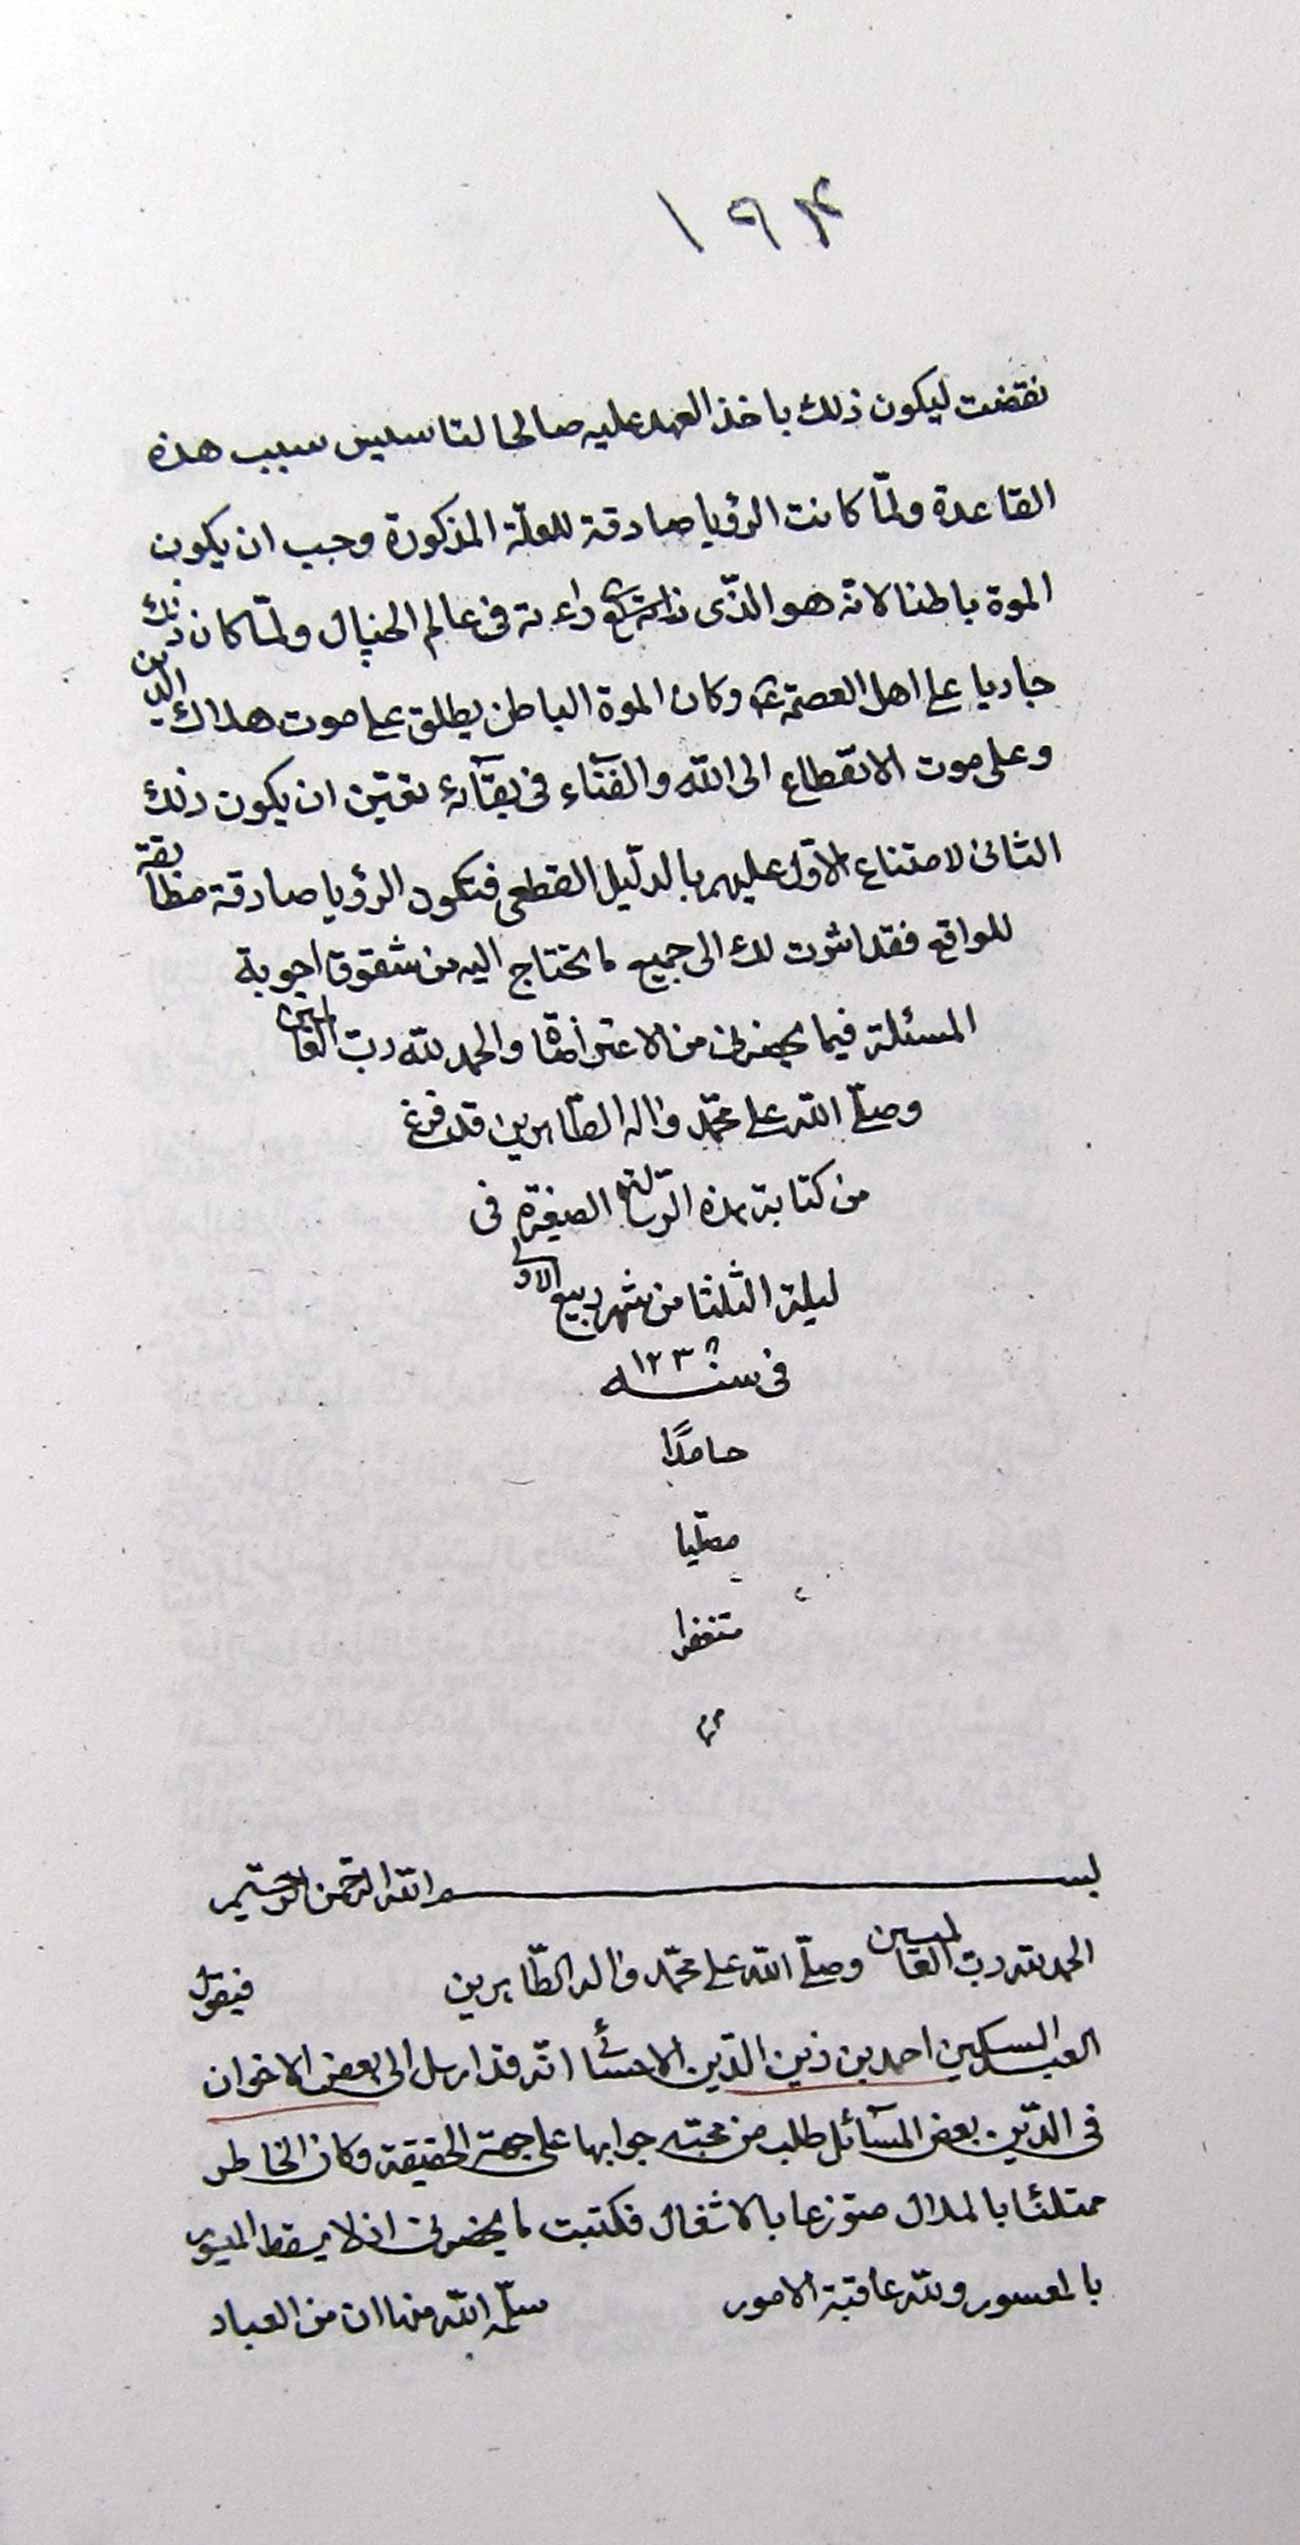 ١٩٤
نقضت ليكون ذلك باخذ العهد عليه صالحا لتاسيس سبب هذه
القاعدة ولمّا كانت الرؤيا صادقة للعلّة المذكورة وجب ان يكون
الموة باطنا لانّه هو الذّى في عالم الخيال ولمّا كان ذلك
جاريا على اهل العصمة ع وكان الموة الباطن يطلق على موت هلاك الدين
وعلى موت الانقطاع الى اللّه والفنآء فى بقآئه تعيّن ان يكون ذلك
الثانى لامتناع الاوّل عليهم بالدّليل القطعى فتكون الرؤيا صادقة مطابقة
للواقع فقد اشرت لك الى جميع ما تحتاج اليه من شقوق اجوبة
المسئلة فيما يحضرنى من الاعتراضات والحمد للّه ربّ العالمين
وصلّى اللّه على محمّد واله الطّاهرين قد فرغ
من كتابة هذه الرّسالة الصغيرة فى
ليلة الثلثا من شهر ربيع الاول
فى سنه ١٢٣
حامدًا
مصلّيا
مستغفرا
بسم اللّه الرّحمن الرّحيم
الحمد للّه ربّ العالمين وصلّى اللّه على محمّد واله الطّاهرين فيقول
العبد المسكين احمد بن زين الدّين الاحسائى انّه قد ارسل الى بعض الاخوان
فى الدّين بعض المسآئل طلب من محبّه جوابها على جهة الحقيقة وكان الخاطر
ممتلئا بالملال متوزعا بالاشغال فكتبت ما يحضرنى اذ لا يسقط الميسور
بالمعسور وللّه عاقبة الامور سلّمه اللّه منها ان من العباد